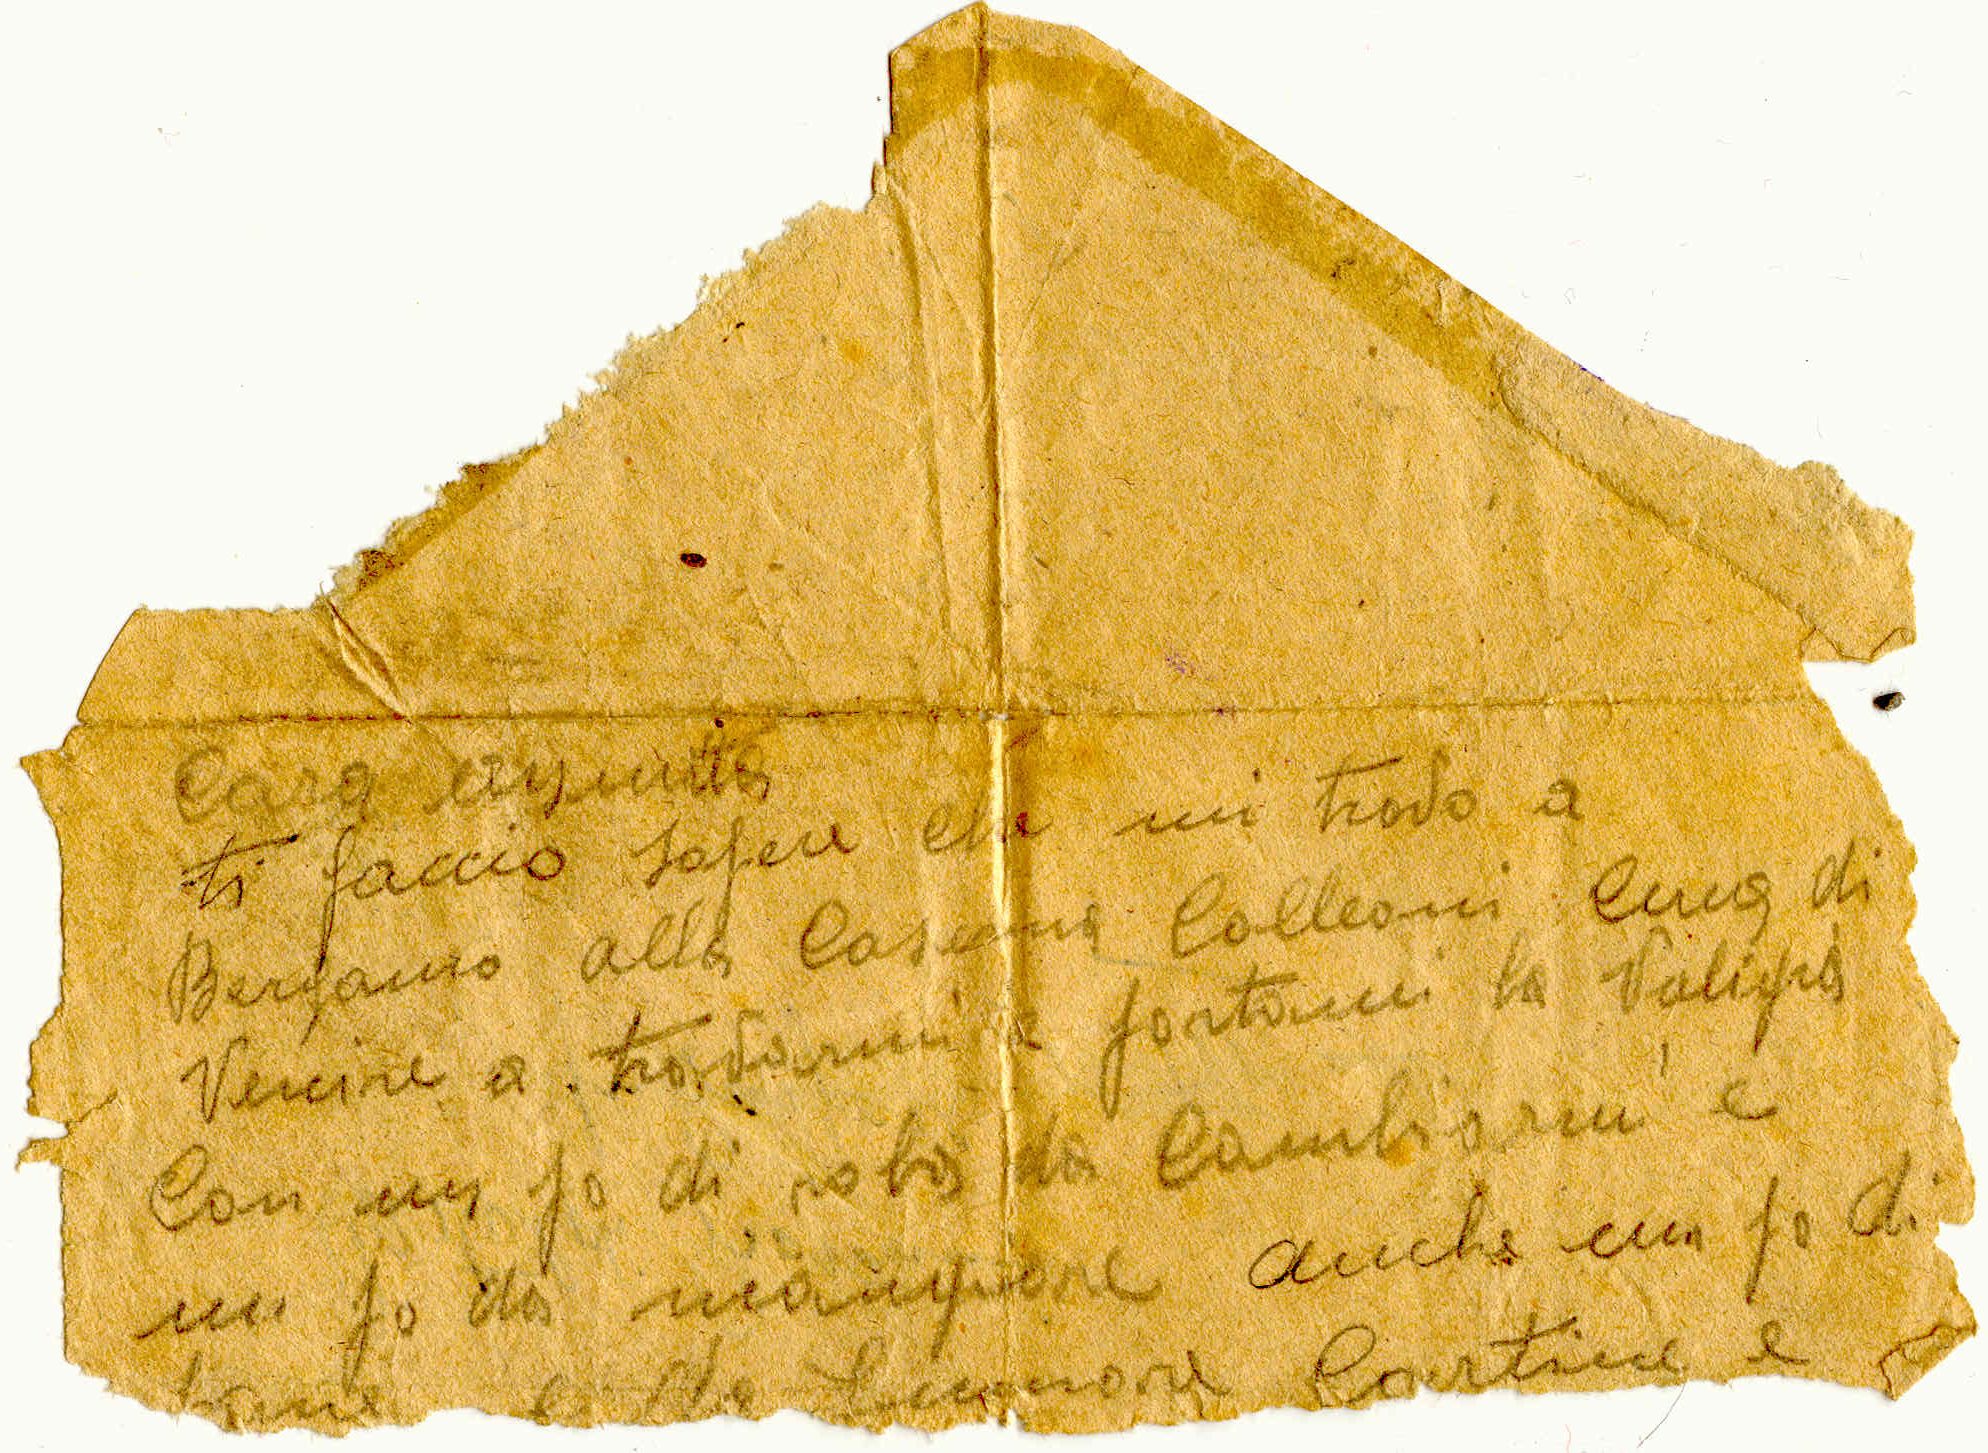 Cara
ti faccio sapere che mi trovo a
Bergamo alla Caserma Colleoni di
Venire a trovarmi e portami la Valigia
Con un po di roba da Cambiarmi e
un po da mangiare anche un po di
pane e da Cartine e